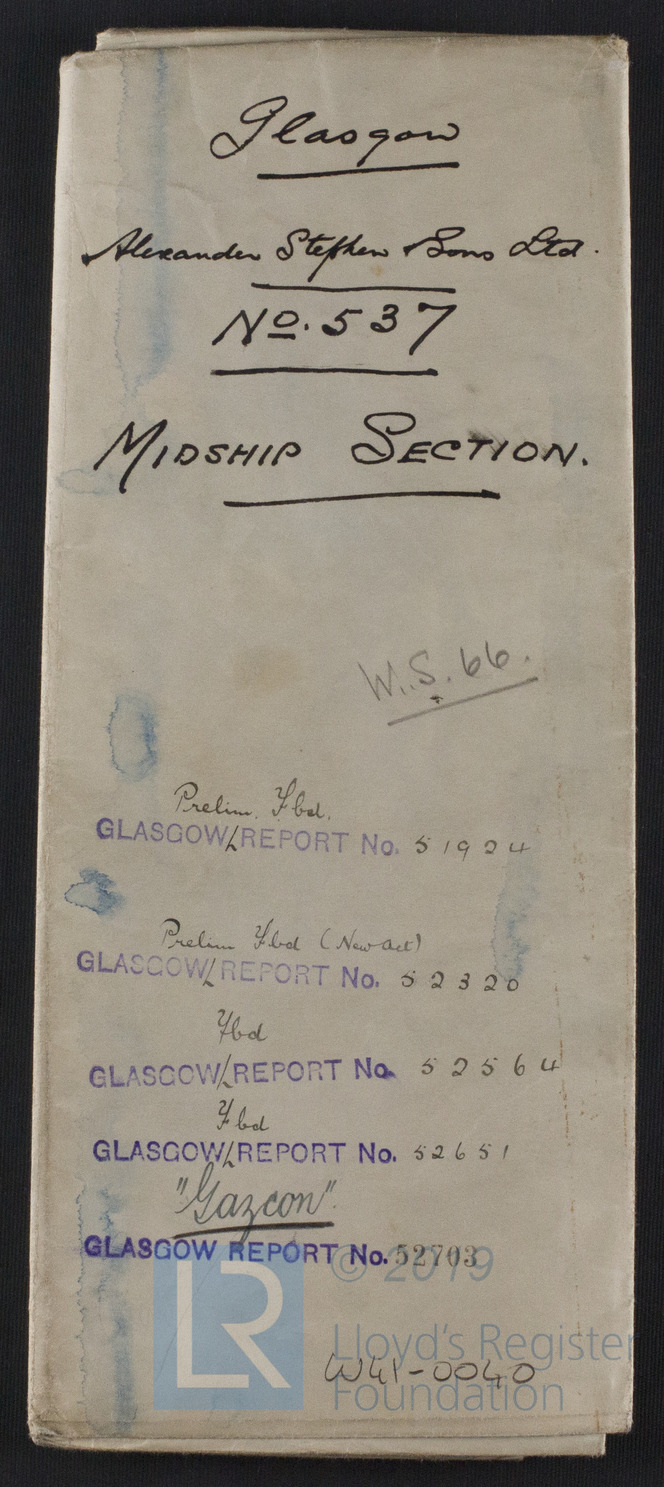 Glasgow
Alexander Stephen & Sons Ltd.
No. 537
MIDSHIP SECTION.
W.S. 66.
Prelim. Fbd.
GLASGOW/REPORT No. 51924
Prelim Fbd (New Act)
GLASGOW/REPORT No. 52320
Fbd
GLASGOW/REPORT No. 52564
Fbd
GLASGOW/REPORT No. 52651
"Gazcon"
GLASGOW REPORT No. 52703
© 2019
LR
Lloyd's Register
W41-0040
Foundation